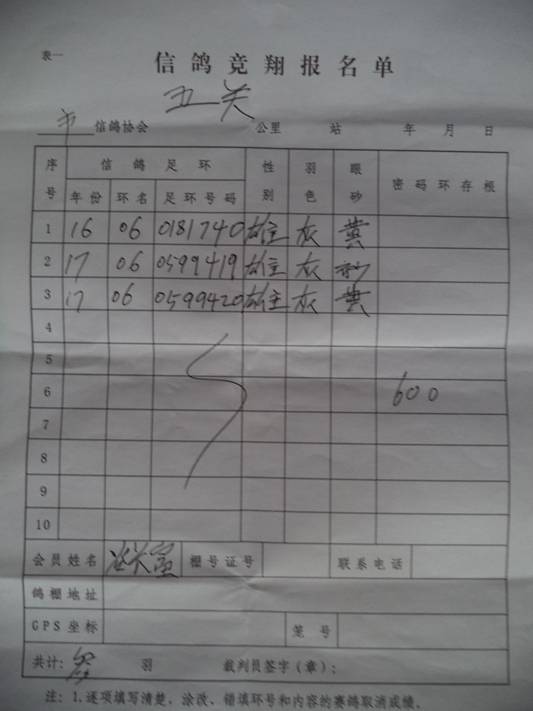 表一
信鸽竞翔报名单
五关
市 信鸽协会 公里 站 年 月 日
序号 信鸽足环 性别 羽色 眼砂 密码环存根
年份 环名 足环号码
1 16 06 0181740 雄 灰 黄
2 17 06 0599419 雄 灰 砂
3 17 06 0599420 雄 灰 黄
4
5
6 600
7
8
9
10
会员姓名 棚号证号 联系电话
鸽棚地址
GPS坐标 笼号
共计: 羽 裁判员签字(章):
注:1.逐项填写清楚,涂改、错填环号和内容的赛鸽取消成绩。